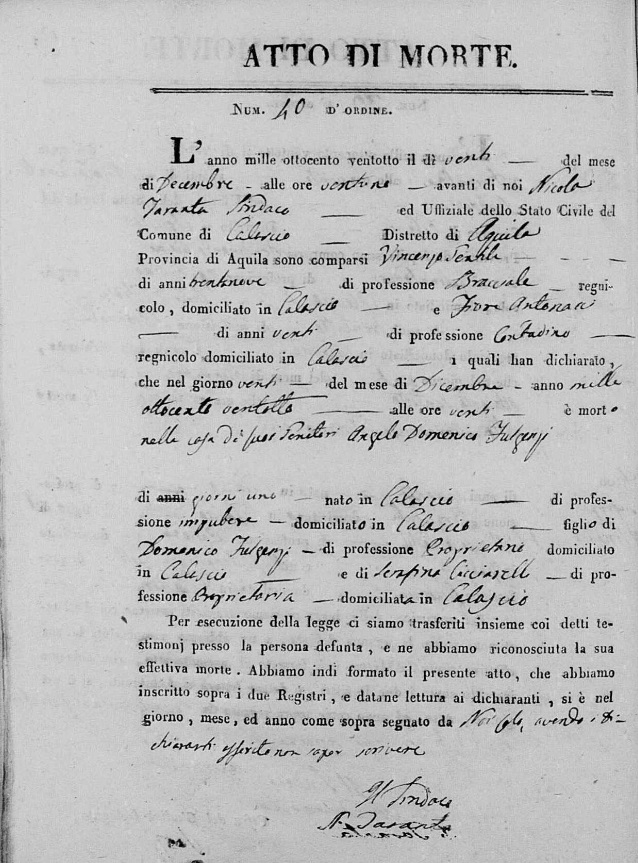 ATTO DI MORTE.
NUM. 40 D'ORDINE.
L'anno mille ottocento ventotto il dì venti — del mese
di Decembre - alle ore ventuno — avanti di noi Nicola
Taranta Sindaco — ed Uffiziale dello Stato Civile del
Comune di Calascio — Distretto di Aquila
Provincia di Aquila sono comparsi Vincenzo Gentile - - -
di anni trentanove — di professione Bracciale — regni-
colo, domiciliato in Calascio — e Fiore Antonacci
— di anni venti — di professione Contadino —
regnicolo domiciliato in Calascio — i quali han dichiarato,
che nel giorno venti — del mese di Dicembre - anno mille
ottocento ventotto — alle ore venti — è morto
nella casa di suoi Genitori Angelo Domenico Fulgenzi
di anni giorni uno — nato in Calascio — di profes-
sione impubere — domiciliato in Calascio — figlio di
Domenico Fulgenzj — di professione Proprietario domiciliato
in Calascio — e di Serafina Cicciarelli — di pro-
fessione Proprietaria — domiciliata in Calascio
Per esecuzione della legge ci siamo trasferiti insieme coi detti te-
stimonj presso la persona defunta, e ne abbiamo riconosciuta la sua
effettiva morte. Abbiamo indi formato il presente atto, che abbiamo
inscritto sopra i due Registri, e datane lettura ai dichiaranti, si è nel
giorno, mese, ed anno come sopra segnato da Noi solo, avendo i di-
chiaranti asserito non saper scrivere
Il Sindaco
N. Taranta